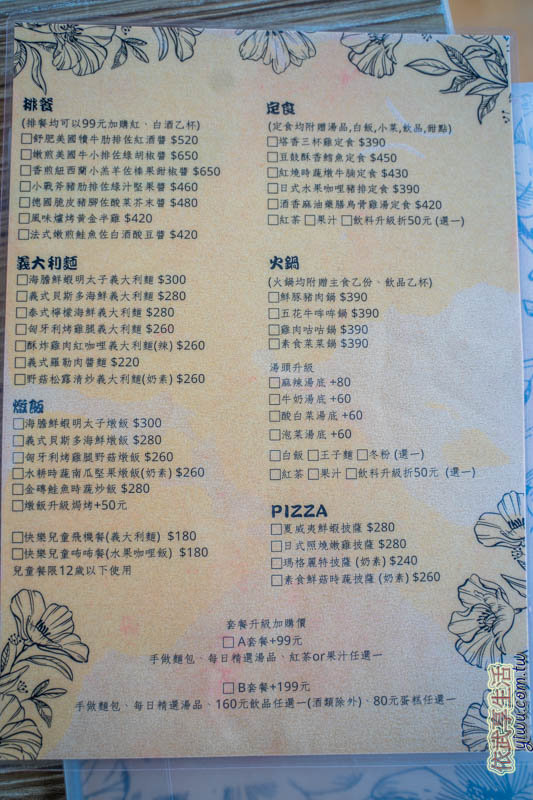 排餐
(排餐均可以99元加購紅、白酒乙杯)
舒肥美國犢牛肋排佐紅酒醬 $520
嫩煎美國牛小排佐綠胡椒醬 $650
香煎紐西蘭小羔羊佐榛果甜椒醬 $650
小戰斧豬肋排佐綠汁堅果醬 $460
德國脆皮豬腳佐酸菜芥末醬 $480
風味爐烤黃金半雞 $420
法式嫩煎鮭魚佐白酒酸豆醬 $420
義大利麵
海膽鮮蝦明太子義大利麵 $300
義式貝斯多海鮮義大利麵 $280
泰式檸檬海鮮義大利麵 $280
匈牙利烤雞腿義大利麵 $260
酥炸雞肉紅咖哩義大利麵(辣) $260
義式羅勒肉醬麵 $220
野菇松露清炒義大利麵(奶素) $260
燉飯
海膽鮮蝦明太子燉飯 $300
義式貝斯多海鮮燉飯 $280
匈牙利烤雞腿野菇燉飯 $260
水耕時蔬南瓜堅果燉飯(奶素) $260
金磚鮭魚時蔬炒飯 $280
燉飯升級焗烤+50元
快樂兒童飛機餐(義大利麵) $180
快樂兒童咘咘餐(水果咖哩飯) $180
兒童餐限12歲以下使用
定食
(定食均附贈湯品,白飯,小菜,飲品,甜點)
塔香三杯雞定食 $390
豆鼓酥香鱈魚定食 $450
紅燒時蔬燉牛腩定食 $430
日式水果咖哩豬排定食 $390
酒香麻油藥膳烏骨雞湯定食 $420
紅茶 果汁 飲料升級折50元 (選一)
火鍋
(火鍋均附贈主食乙份、飲品乙杯)
鮮豚豬肉鍋 $390
五花牛哞哞鍋 $390
雞肉咕咕鍋 $390
素食菜菜鍋 $390
湯頭升級
麻辣湯底 +80
牛奶湯底 +60
酸白菜湯底 +60
泡菜湯底 +60
白飯 王子麵 冬粉 (選一)
紅茶 果汁 飲料升級折50元 (選一)
PIZZA
夏威夷鮮蝦披薩 $280
日式照燒嫩雞披薩 $280
瑪格麗特披薩 (奶素) $240
素食鮮菇時蔬披薩 (奶素) $260
套餐升級加購價
A套餐+99元
手做麵包、每日精選湯品、紅茶or果汁任選一
B套餐+199元
手做麵包、每日精選湯品、160元飲品任選一(酒類除外)、80元蛋糕任選一
依武享生活
yiwu.com.tw